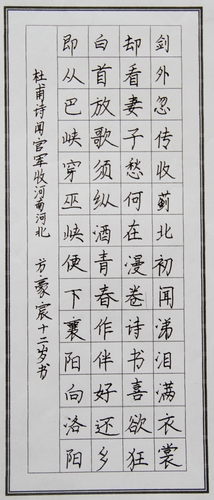 剑外忽传收蓟北初闻涕泪满衣裳
却看妻子愁何在漫卷诗书喜欲狂
白首放歌须纵酒青春作伴好还乡
即从巴峡穿巫峡便下襄阳向洛阳
杜甫诗闻官军收河南河北 方豪宸十二岁书